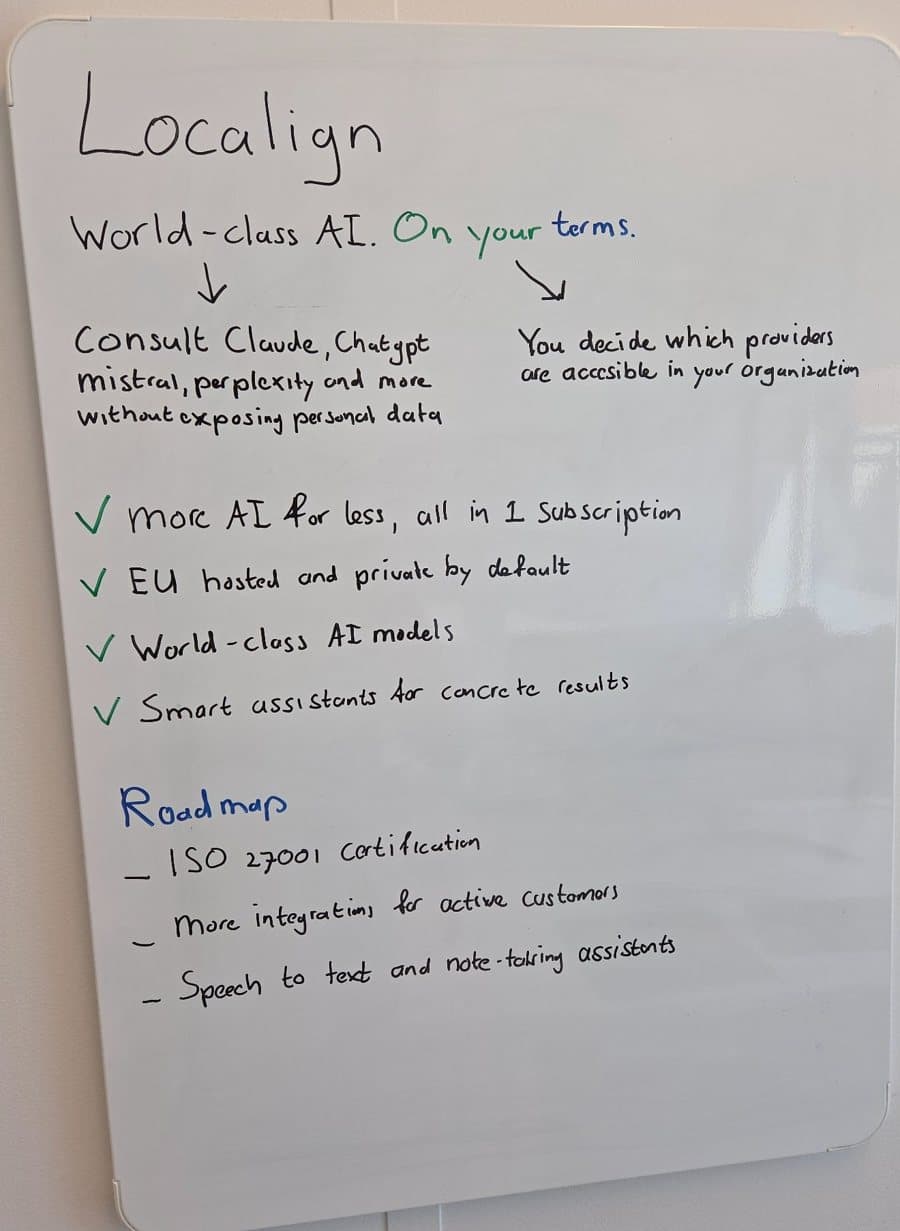 Localign
World-class AI. On your terms.
Consult Claude, Chatgpt
mistral, perplexity and more
without exposing personal data
You decide which providers
are accesible in your organization
✓ more AI for less, all in 1 subscription
✓ EU hosted and private by default
✓ World-class AI models
✓ Smart assistants for concrete results
Roadmap
- ISO 27001 certification
- more integrations for active customers
- Speech to text and note-taking assistants